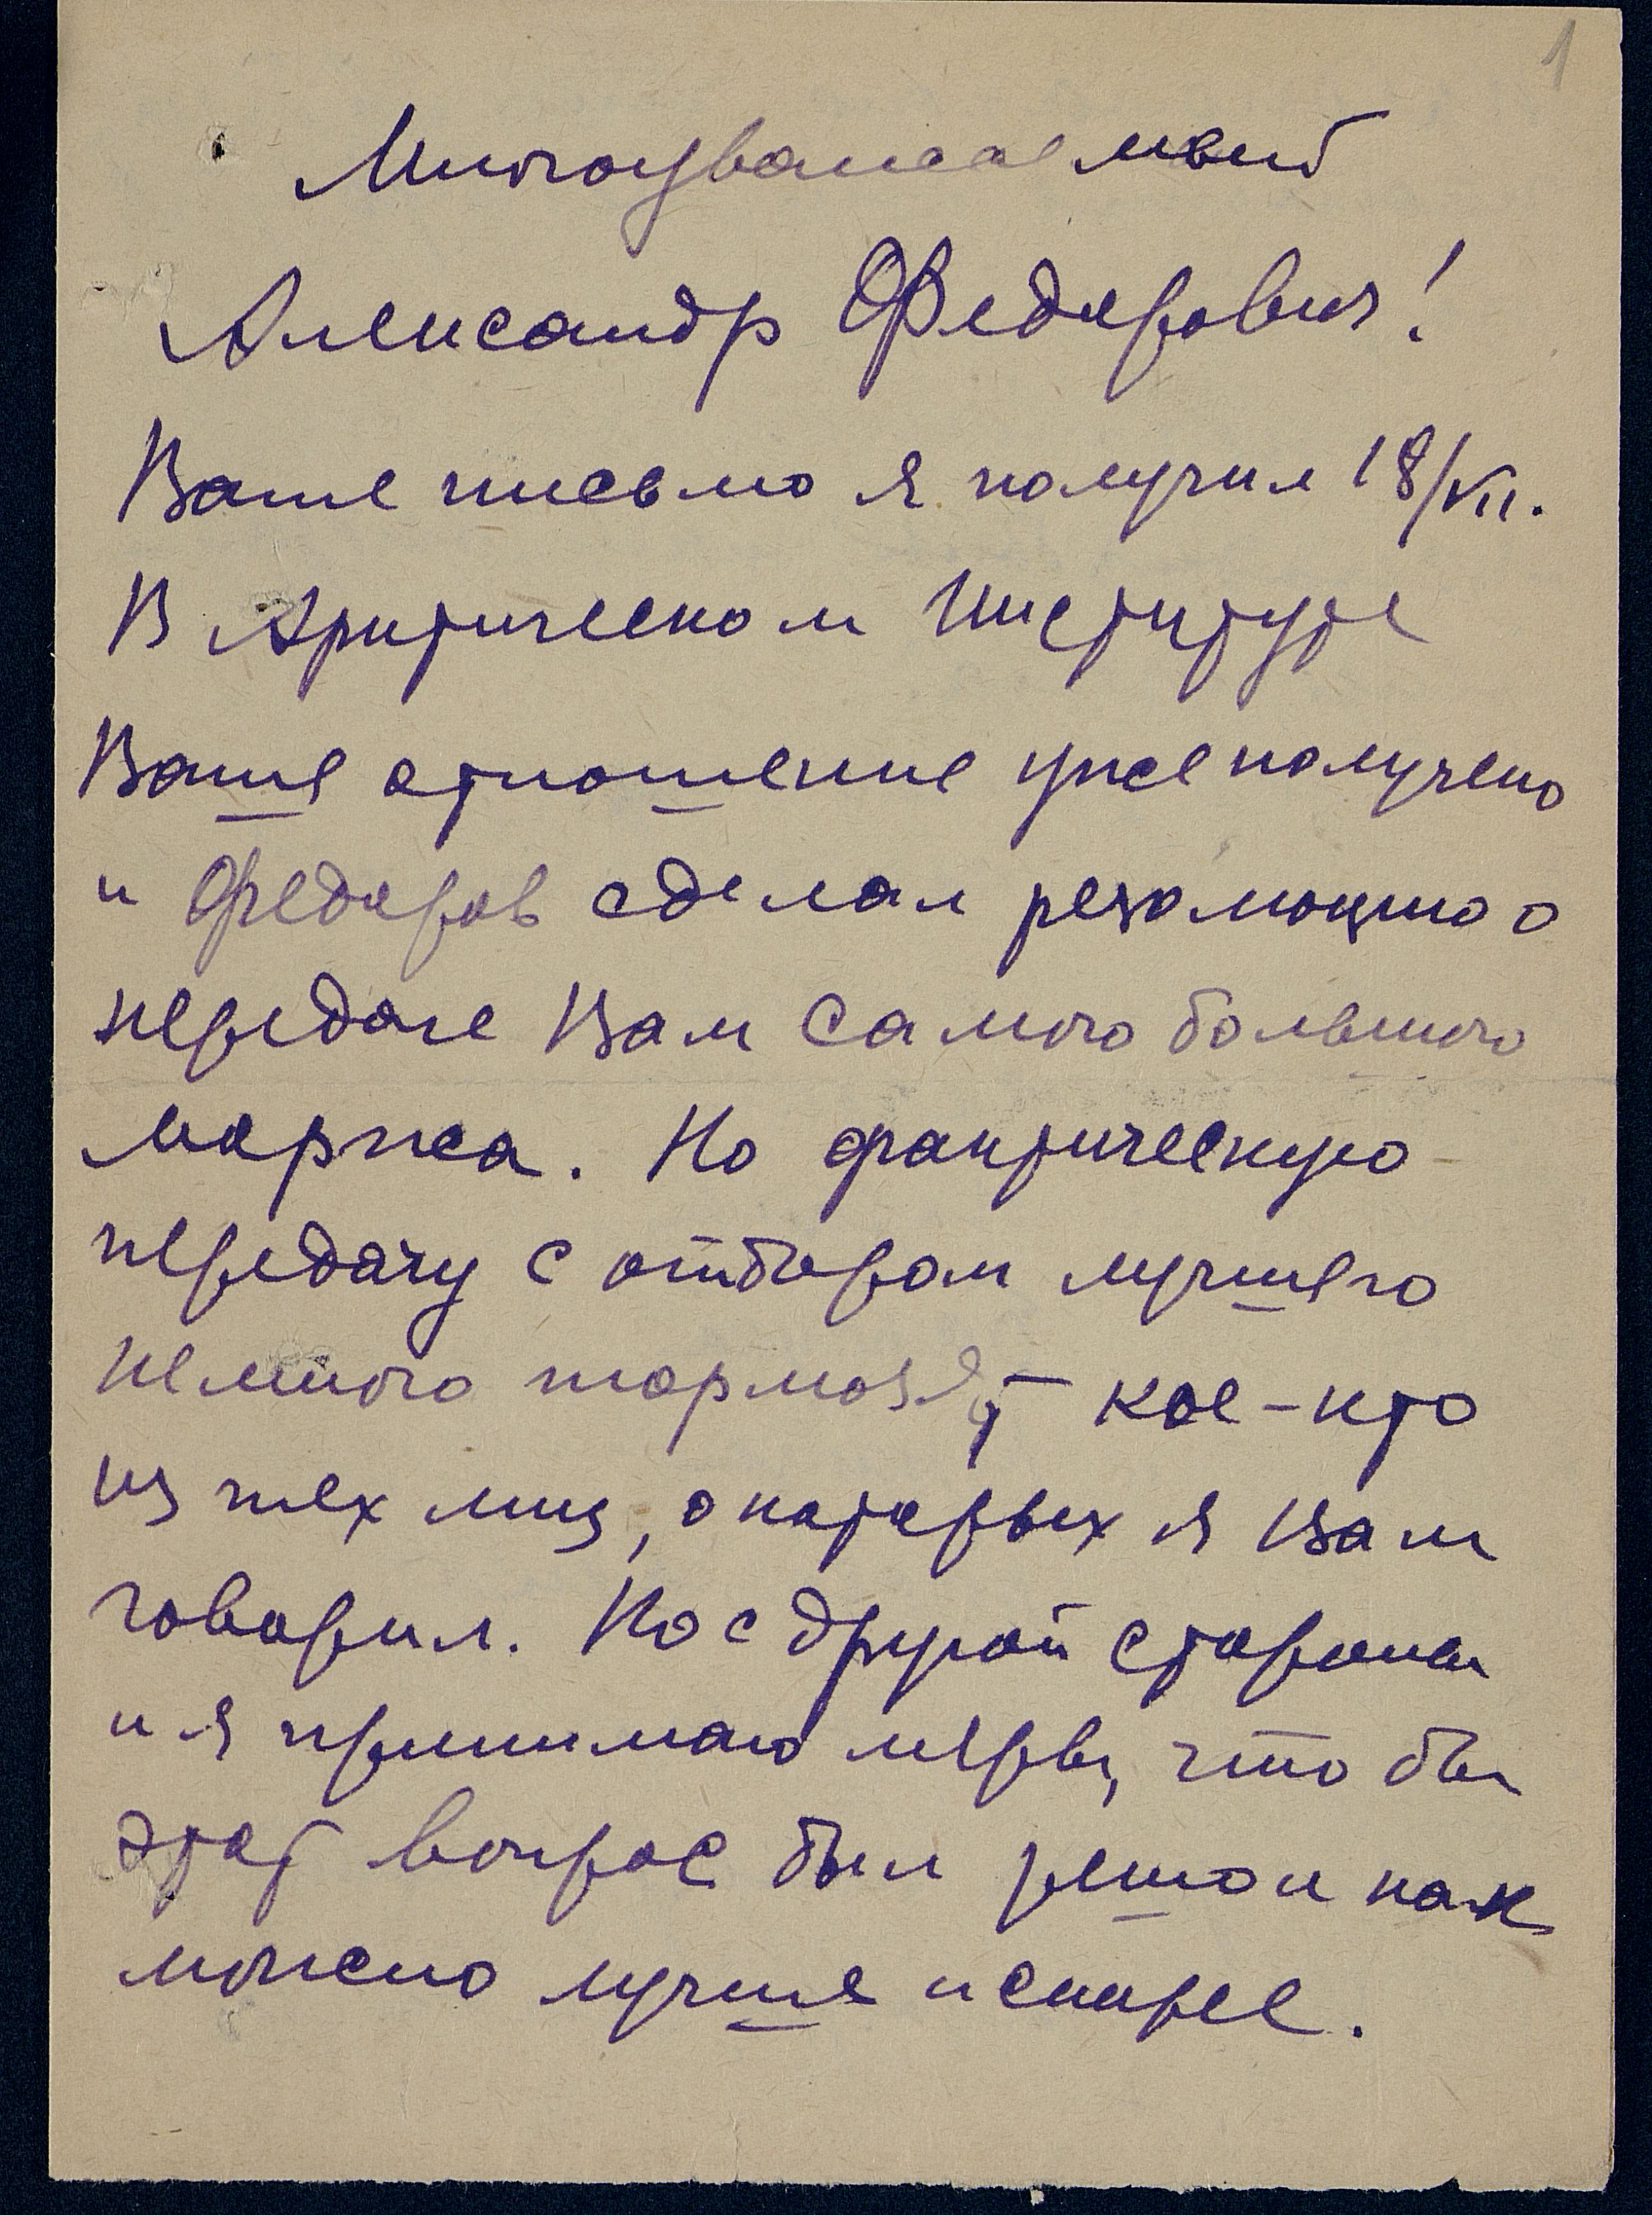 1
Многоуважаемый
Александр Федорович!
Ваше письмо я получил 18/VII.
В Арктическом Институте
Ваше отношение уже получено
и Федоров сделал резолюцию о
передаче Вам самого большого
моржа. Но фактическую
передачу с отбором лучшего
немного тормозят кое-кто
из тех лиц, о которых я Вам
говорил. Но с другой стороны
и я принимаю меры, что бы
этот вопрос был решон как
можно лучше и скорее.